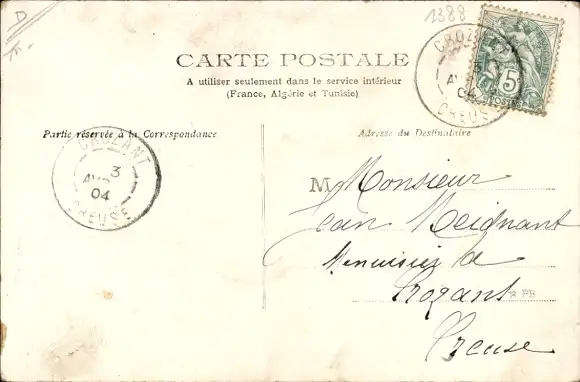 D
1388
CARTE POSTALE
A utiliser seulement dans le service intérieur
(France, Algérie et Tunisie)
CROZANT
AV
04
CREUSE
5
POSTES
Partie réservée à la Correspondance
Adresse du Destinataire
CROZANT
3
AVR
04
CREUSE
M Monsieur
Jean Meignant
Menuisier à
Crozant
Creuse